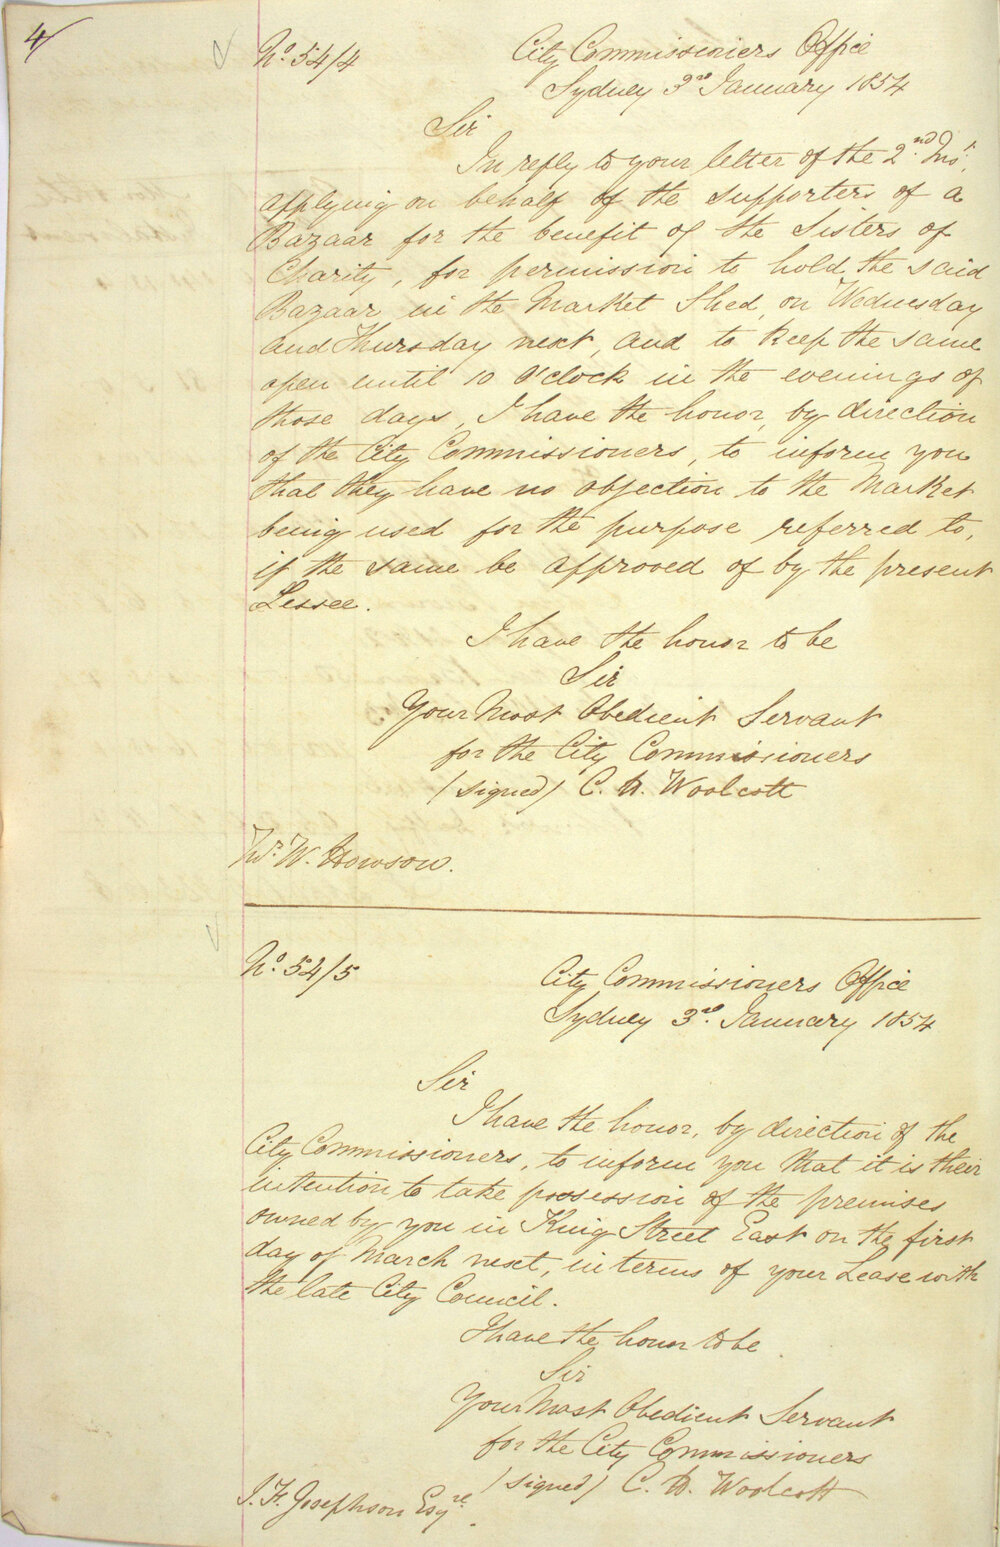 4
No. 54/4
City Commissioners Office
Sydney 3rd January 1854
Sir
In reply to your letter of the 2nd Inst.
applying on behalf of the supporters of a
Bazaar for the benefit of the Sisters of
Charity, for permission to hold the said
Bazaar in the Market Shed, on Wednesday
and Thursday next, and to keep the same
open until 10 O'clock in the evenings of
those days, I have the honor, by direction
of the City Commissioners, to inform you
that they have no objection to the Market
being used for the purpose referred to,
if the same be approved of by the present
Lessee.
I have the honor to be
Sir
Your Most Obedient Servant
for the City Commissioners
(signed) C. H. Woolcott
Mr. W. Howson.
No. 54/5
City Commissioners Office
Sydney 3rd. January 1854
Sir
I have the honor, by direction of the
City Commissioners, to inform you that it is their
intention to take possession of the premises
owned by you in King Street East on the first
day of March next, in terms of your Lease with
the late City Council.
I have the honor to be
Sir
Your Most Obedient Servant
for the City Commissioners
(signed) C. H. Woolcott
J. F. Josephson Esqre.